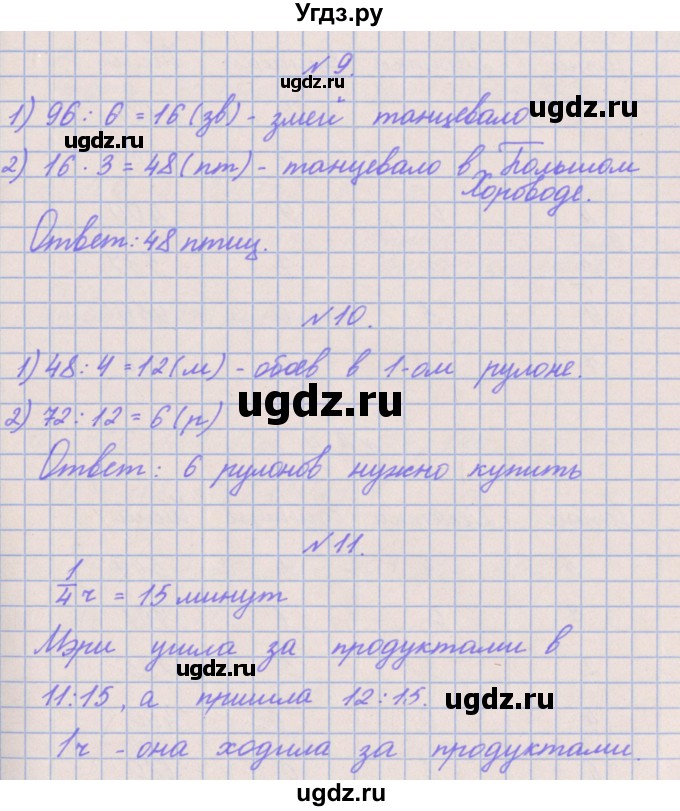 Угдз.ру
№9.
ugdz.ru
1) 96 : 6 = 16 (зв) - змей танцевало
ugdz.ru
ugdz.ru
2) 16 · 3 = 48 (пт) - танцевало в Большом
Хороводе.
Ответ: 48 птиц.
№10.
1) 48 : 4 = 12 (м) - обоев в 1-ом рулоне.
ugdz.ru
2) 72 : 12 = 6 (р)
Ответ: 6 рулонов нужно купить
№11.
1/4 ч = 15 минут
Мэри ушла за продуктами в
ugdz.ru
11:15, а пришла 12:15.
ugdz.ru
1ч - она ходила за продуктами.
ugdz.ru